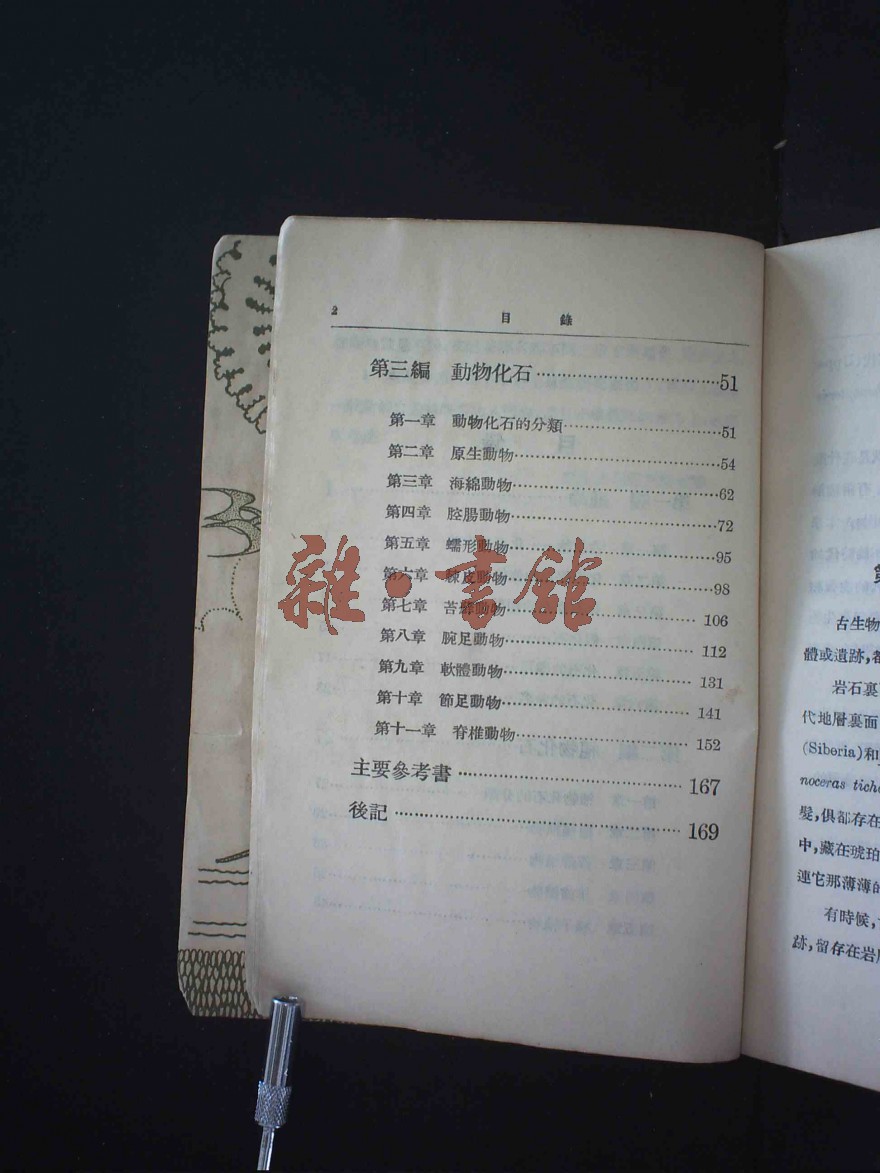 2 目錄
第三編 動物化石……………………………51
第一章 動物化石的分類……………………………51
第二章 原生動物……………………………54
第三章 海綿動物……………………………62
第四章 腔腸動物……………………………72
第五章 蠕形動物……………………………95
第六章 棘皮動物……………………………98
第七章 苔蘚動物……………………………106
第八章 腕足動物……………………………112
第九章 軟體動物……………………………131
第十章 節足動物……………………………141
第十一章 脊椎動物……………………………152
主要參考書……………………………167
後記……………………………169
雜·書館
第
古生物
體或遺跡,都
岩石裏
代地層裏面
(Siberia)和
noceras tich
髮,俱都存在
中,藏在琥珀
連它那薄薄的
有時候,
跡,留存在岩